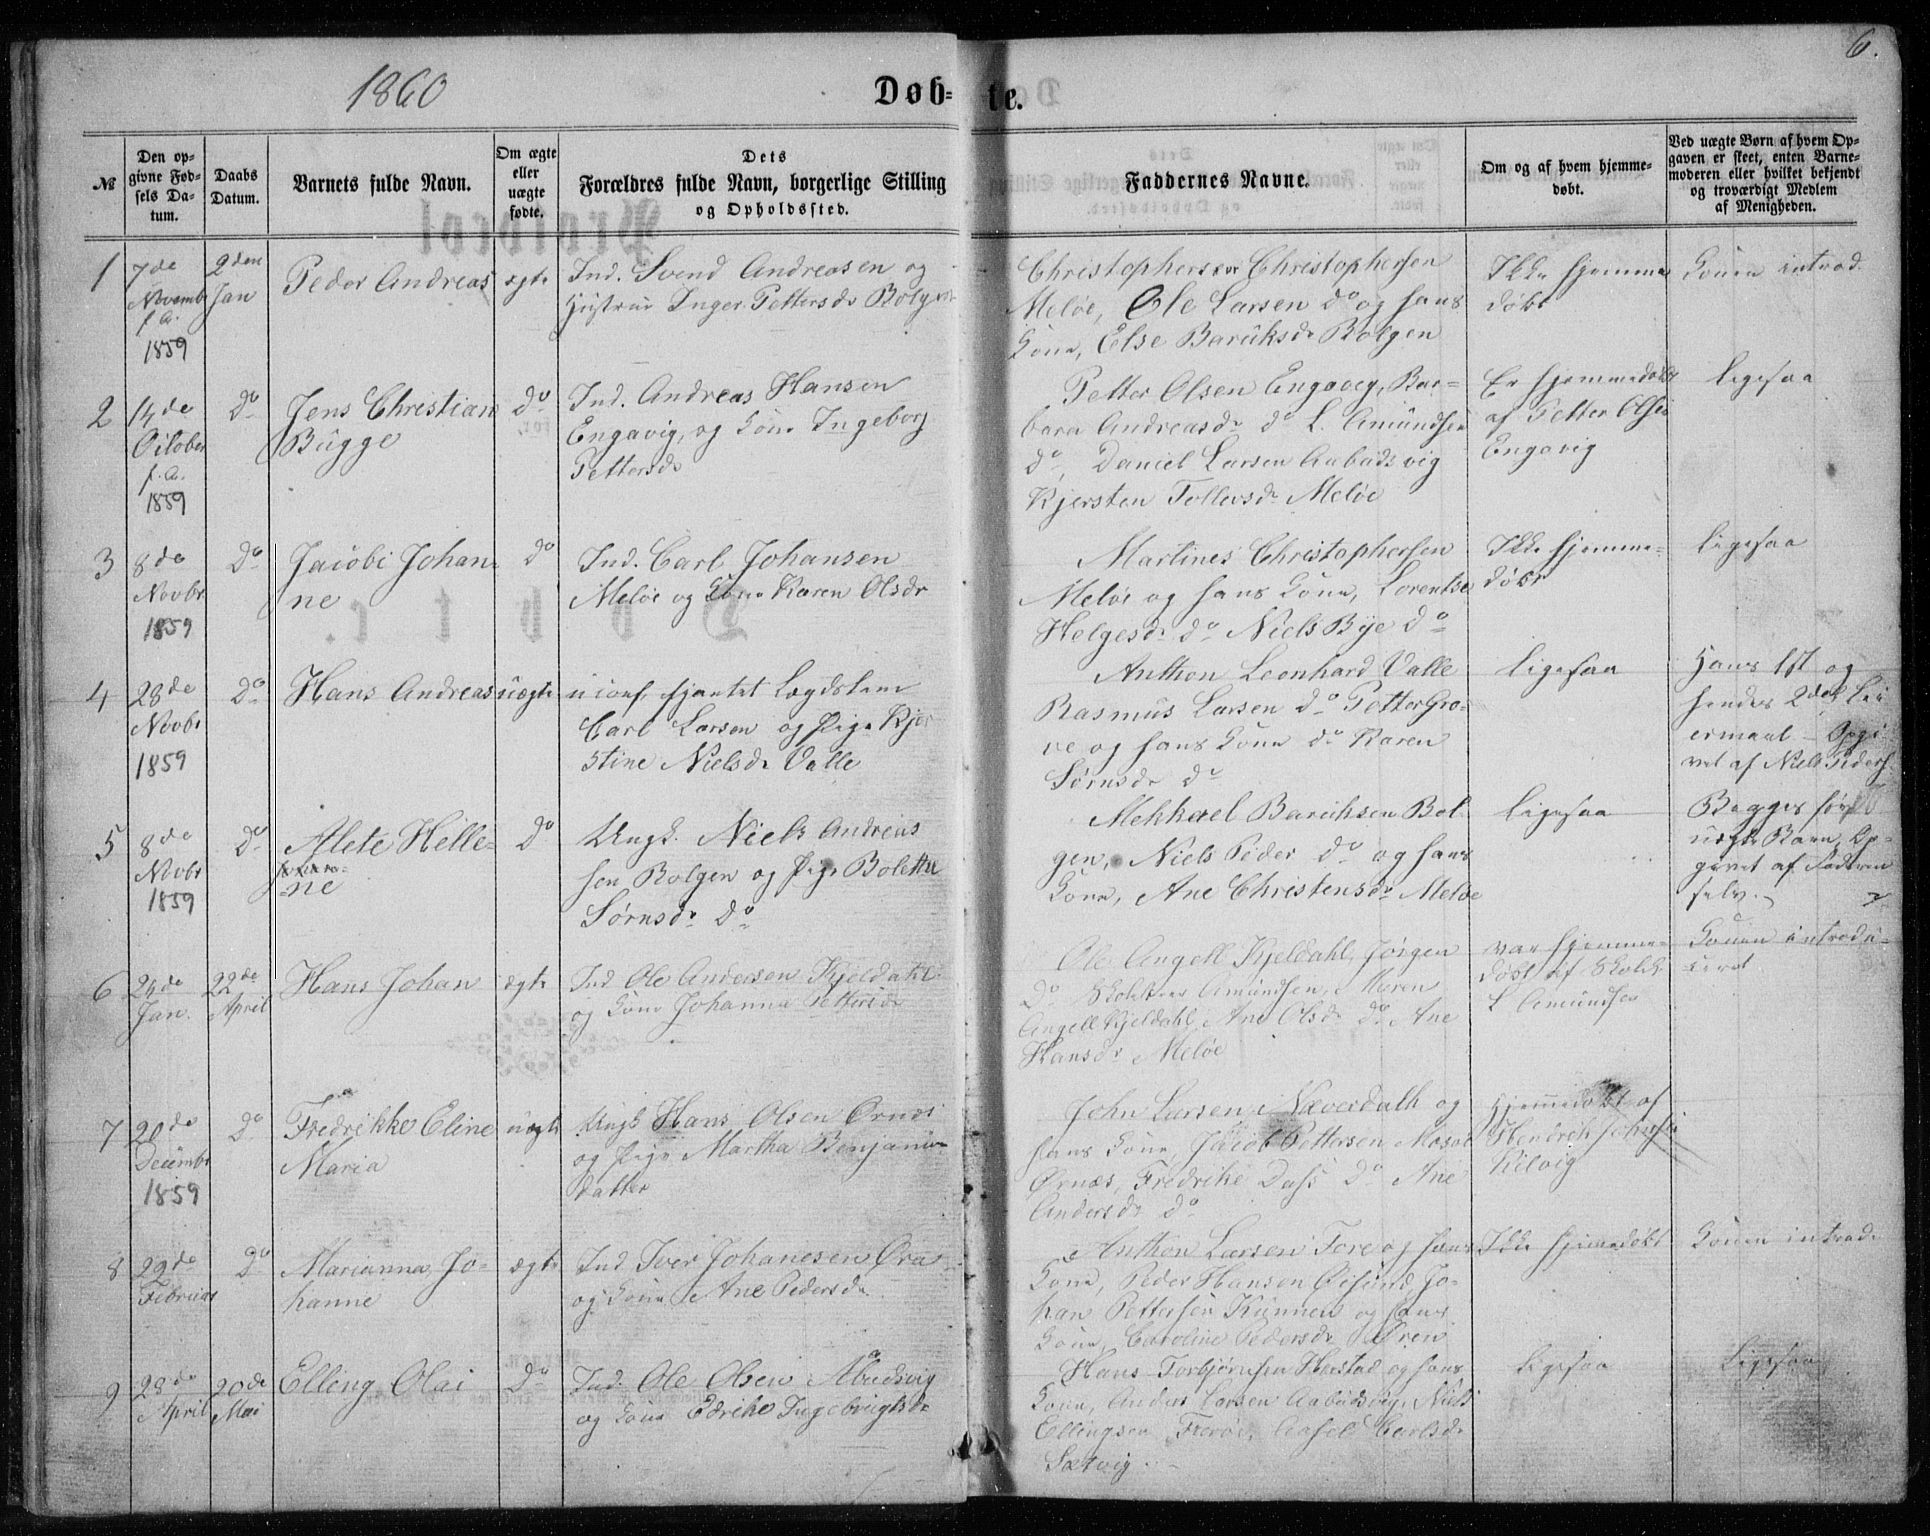 1860
Døb-
te.
6.
№
Den op-
givne Fød-
sels Da-
tum.
Daabs
Datum.
Barnets fulde Navn.
Om ægte
eller
uægte
fødte.
Dets
Forældres fulde Navn, borgerlige Stilling
og Opholdssted.
Faddernes Navne.
Om og af hvem hjemme-
døbt.
Ved uægte Børn af hvem Op-
gaven er skeet, enten Barne-
moderen eller hvilket bekjendt
og troværdigt Medlem
af Menigheden.
1
7de
Novembr
f. A.
1859
2den
Jan
Peder Andreas
ægte
Ind. Svend Andreasen og
Hustrue Inger Pettersdr Bolgen
Christophersen Christophersen
Meløe, Ole Larsen do og hans
Kone, Else Baruksdr Bolgen
Ikke hjemme
døbt
Konen introd.
2
14de
October
f. A.
1859
Do
Jens Christian
Bugge
Do
Ind. Andreas Hansen
Engavig, og Kone Ingeborg
Pettersdr
Petter Olsen Engavig, Bar-
bara Andreasdr do L. Amundsen
do, Daniel Larsen Aabudsvig
Kjersten Tollersdr Meløe
Er hjemmedøbt
af Petter Olsen
Engavig
Ligesaa
3
8de
Novbr
1859
Do
Jacobi Johan-
ne
Do
Ind. Carl Johansen
Meløe og Kone Karen Olsdr
Martines Christophersen
Meløe og hans Kone, Lorentse
Helgesdr do Niels Bye do
Ikke hjemme-
døbt
Ligesaa
4
28de
Novbr
1859
Do
Hans Andreas
uægte
uconf. tjente Lægdslem
Carl Larsen og Pige Kjer
stine Nielsdr Valle
Anthon Leonhard Valle
Rasmus Larsen do Petter Gro-
ve og hans Kone do Karen
Sørnsdr do
Ligesaa
Hans 1st og
hendes 2det Lei
ermaal – Opgi-
vet af Niels Peders.
5
8de
Novbr
1859
Do
Alete Helle-
ne
Do
Ungk. Niels Andreas
sen Bolgen og Pige Bolette
Sørnsdr do
Mekkael Baruksen Bol
gen, Niels Peder do og hans
Kone, Ane Christensdr Meløe
Ligesaa
Begges første
uægte Barn, Op-
givet af Faderen
selv.
6
24de
Jan.
22de
April
Hans Johan
ægte
Ind Ole Andersen Kjeldahl
og Kone Johanna Pettersdr
Ole Angell Kjeldahl, Jørgen
Do Skolelærer Amundsen, Maren
Angell Kjeldahl, Ane Olsdr do Ane
Hansdr Meløe
var hjemme-
døbt af Skolel.
L Amundsen
Konen introdu-
ceret
7
20de
Decembr
1859
Do
Fredrikke Eline
Maria
uægte
Ungk Hans Olsen Ørnæs
og Pige Martha Benjamin
datter
John Larsen, Næverdalh og
hans Kone, Jacob Pettersen Mosvold
Ørnæs, Fredrike Dass do Ane
Andersdr do
Hjemmedøbt af
Hendrik Johnsen
Kilvig
8
29de
Februar
Do
Marianna Jo-
hanne
ægte
Ind Iver Johanesen Øra
og Kone Ane Pedersdr
Anthon Larsen Fore og hans
Kone, Peder Hansen Øesund, Jo-
han Pettersen Kunnen og hans
Kone, Caroline Pedersdr Øren
Ikke hjemedøbt
Konen introd.
9
28de
April
20de
Mai
Elling Olai
Do
Ind. Ole Olsen Abudsvig
og Kone Edrike Ingebrigtsdr
Hans Torbjørnsen Hæstad og hans
Kone, Anders Larsen Aabudsvig, Niels
Ellingsen Frerøe, Axsel Carlsdr
Sætvig
Ligesaa
Ligesaa